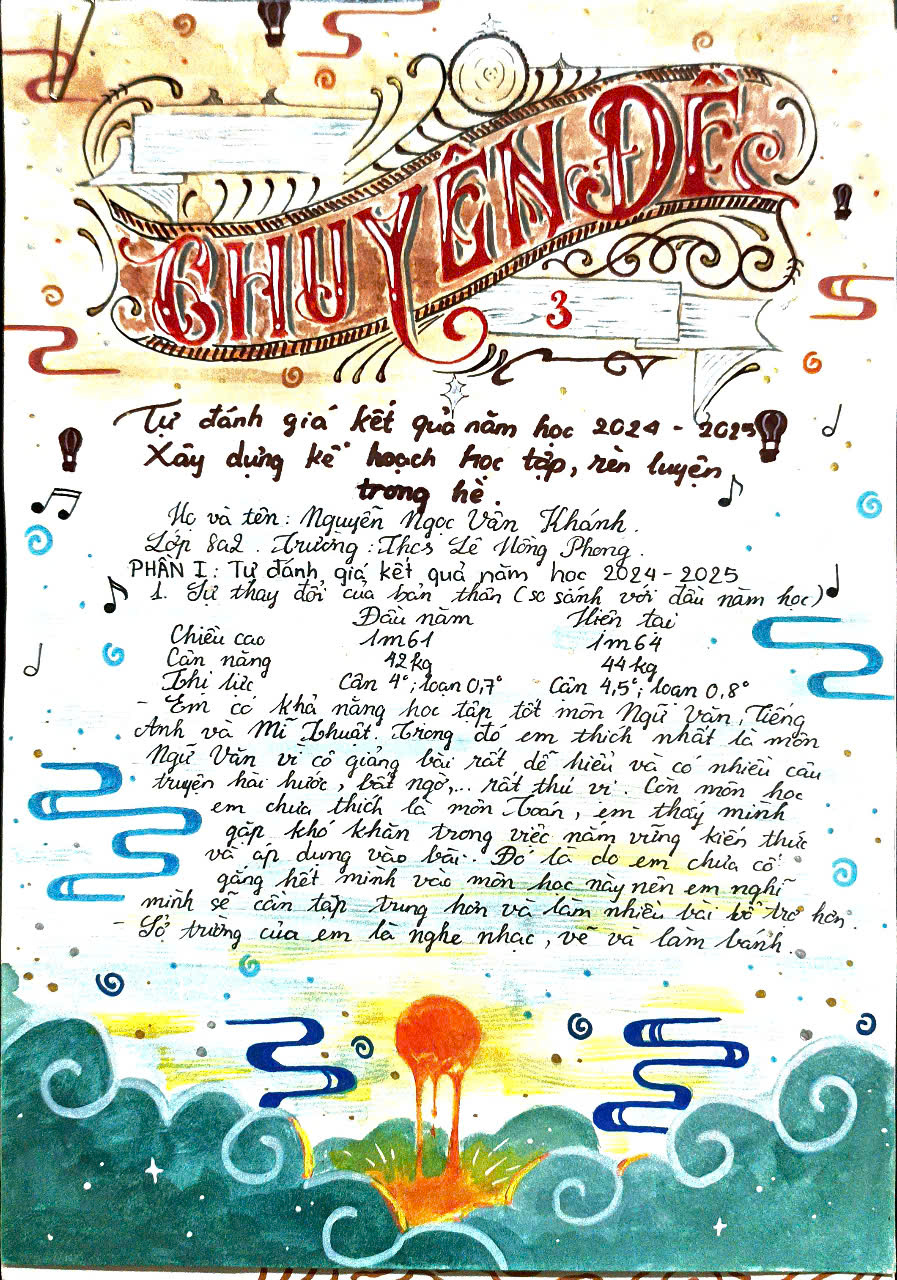 CHUYÊN ĐỀ
3
Tự đánh giá kết quả năm học 2024 - 2025
Xây dựng kế hoạch học tập, rèn luyện
trong hè.
Họ và tên: Nguyễn Ngọc Vân Khánh.
Lớp 8a2. Trường: Thcs Lê Hồng Phong.
PHẦN I: Tự đánh giá kết quả năm học 2024-2025
1. Sự thay đổi của bản thân (so sánh với đầu năm học)
Đầu năm Hiện tại
Chiều cao 1m61 1m64
Cân nặng 42kg 44kg
Thị lực Cận 4°; loạn 0,7° Cận 4,5°; loạn 0,8°
- Em có khả năng học tập tốt môn Ngữ Văn, Tiếng
Anh và Mĩ Thuật. Trong đó em thích nhất là môn
Ngữ Văn vì cô giảng bài rất dễ hiểu và có nhiều câu
truyện hài hước, bất ngờ,... rất thú vị. Còn môn học
em chưa thích là môn Toán, em thấy mình
gặp khó khăn trong việc nắm vững kiến thức
và áp dụng vào bài. Đó là do em chưa cố
gắng hết mình vào môn học này nên em nghĩ
mình sẽ cần tập trung hơn và làm nhiều bài bổ trợ hơn.
- Sở trường của em là nghe nhạc, vẽ và làm bánh.